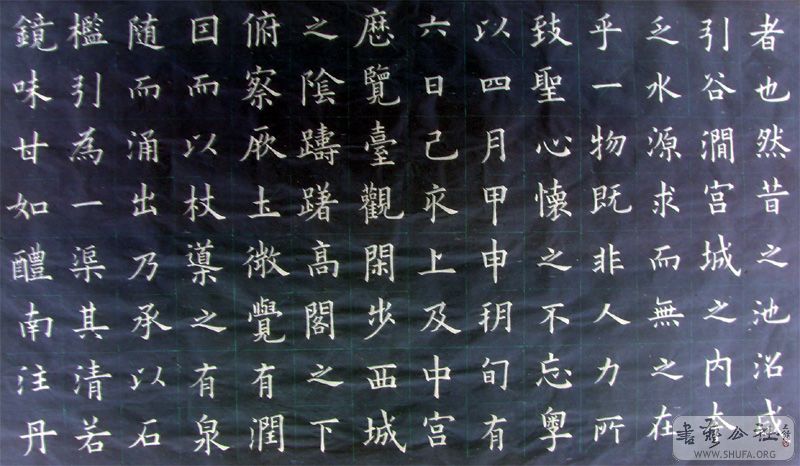 者也然昔之池沼咸
引谷澗宮城之内夲
乏水源求而無之在
乎一物既非人力所
致聖心懷之不忘粤
以四月甲申朔旬有
六日己亥上及中宮
歷覽臺觀閑步西城
之陰躊躇高閣之下
俯察厥土微覺有潤
因而以杖導之有泉
随而涌出乃承以石
檻引為一渠其清若
鏡味甘如醴南注丹
書藝公社
WWW.SHUFA.ORG